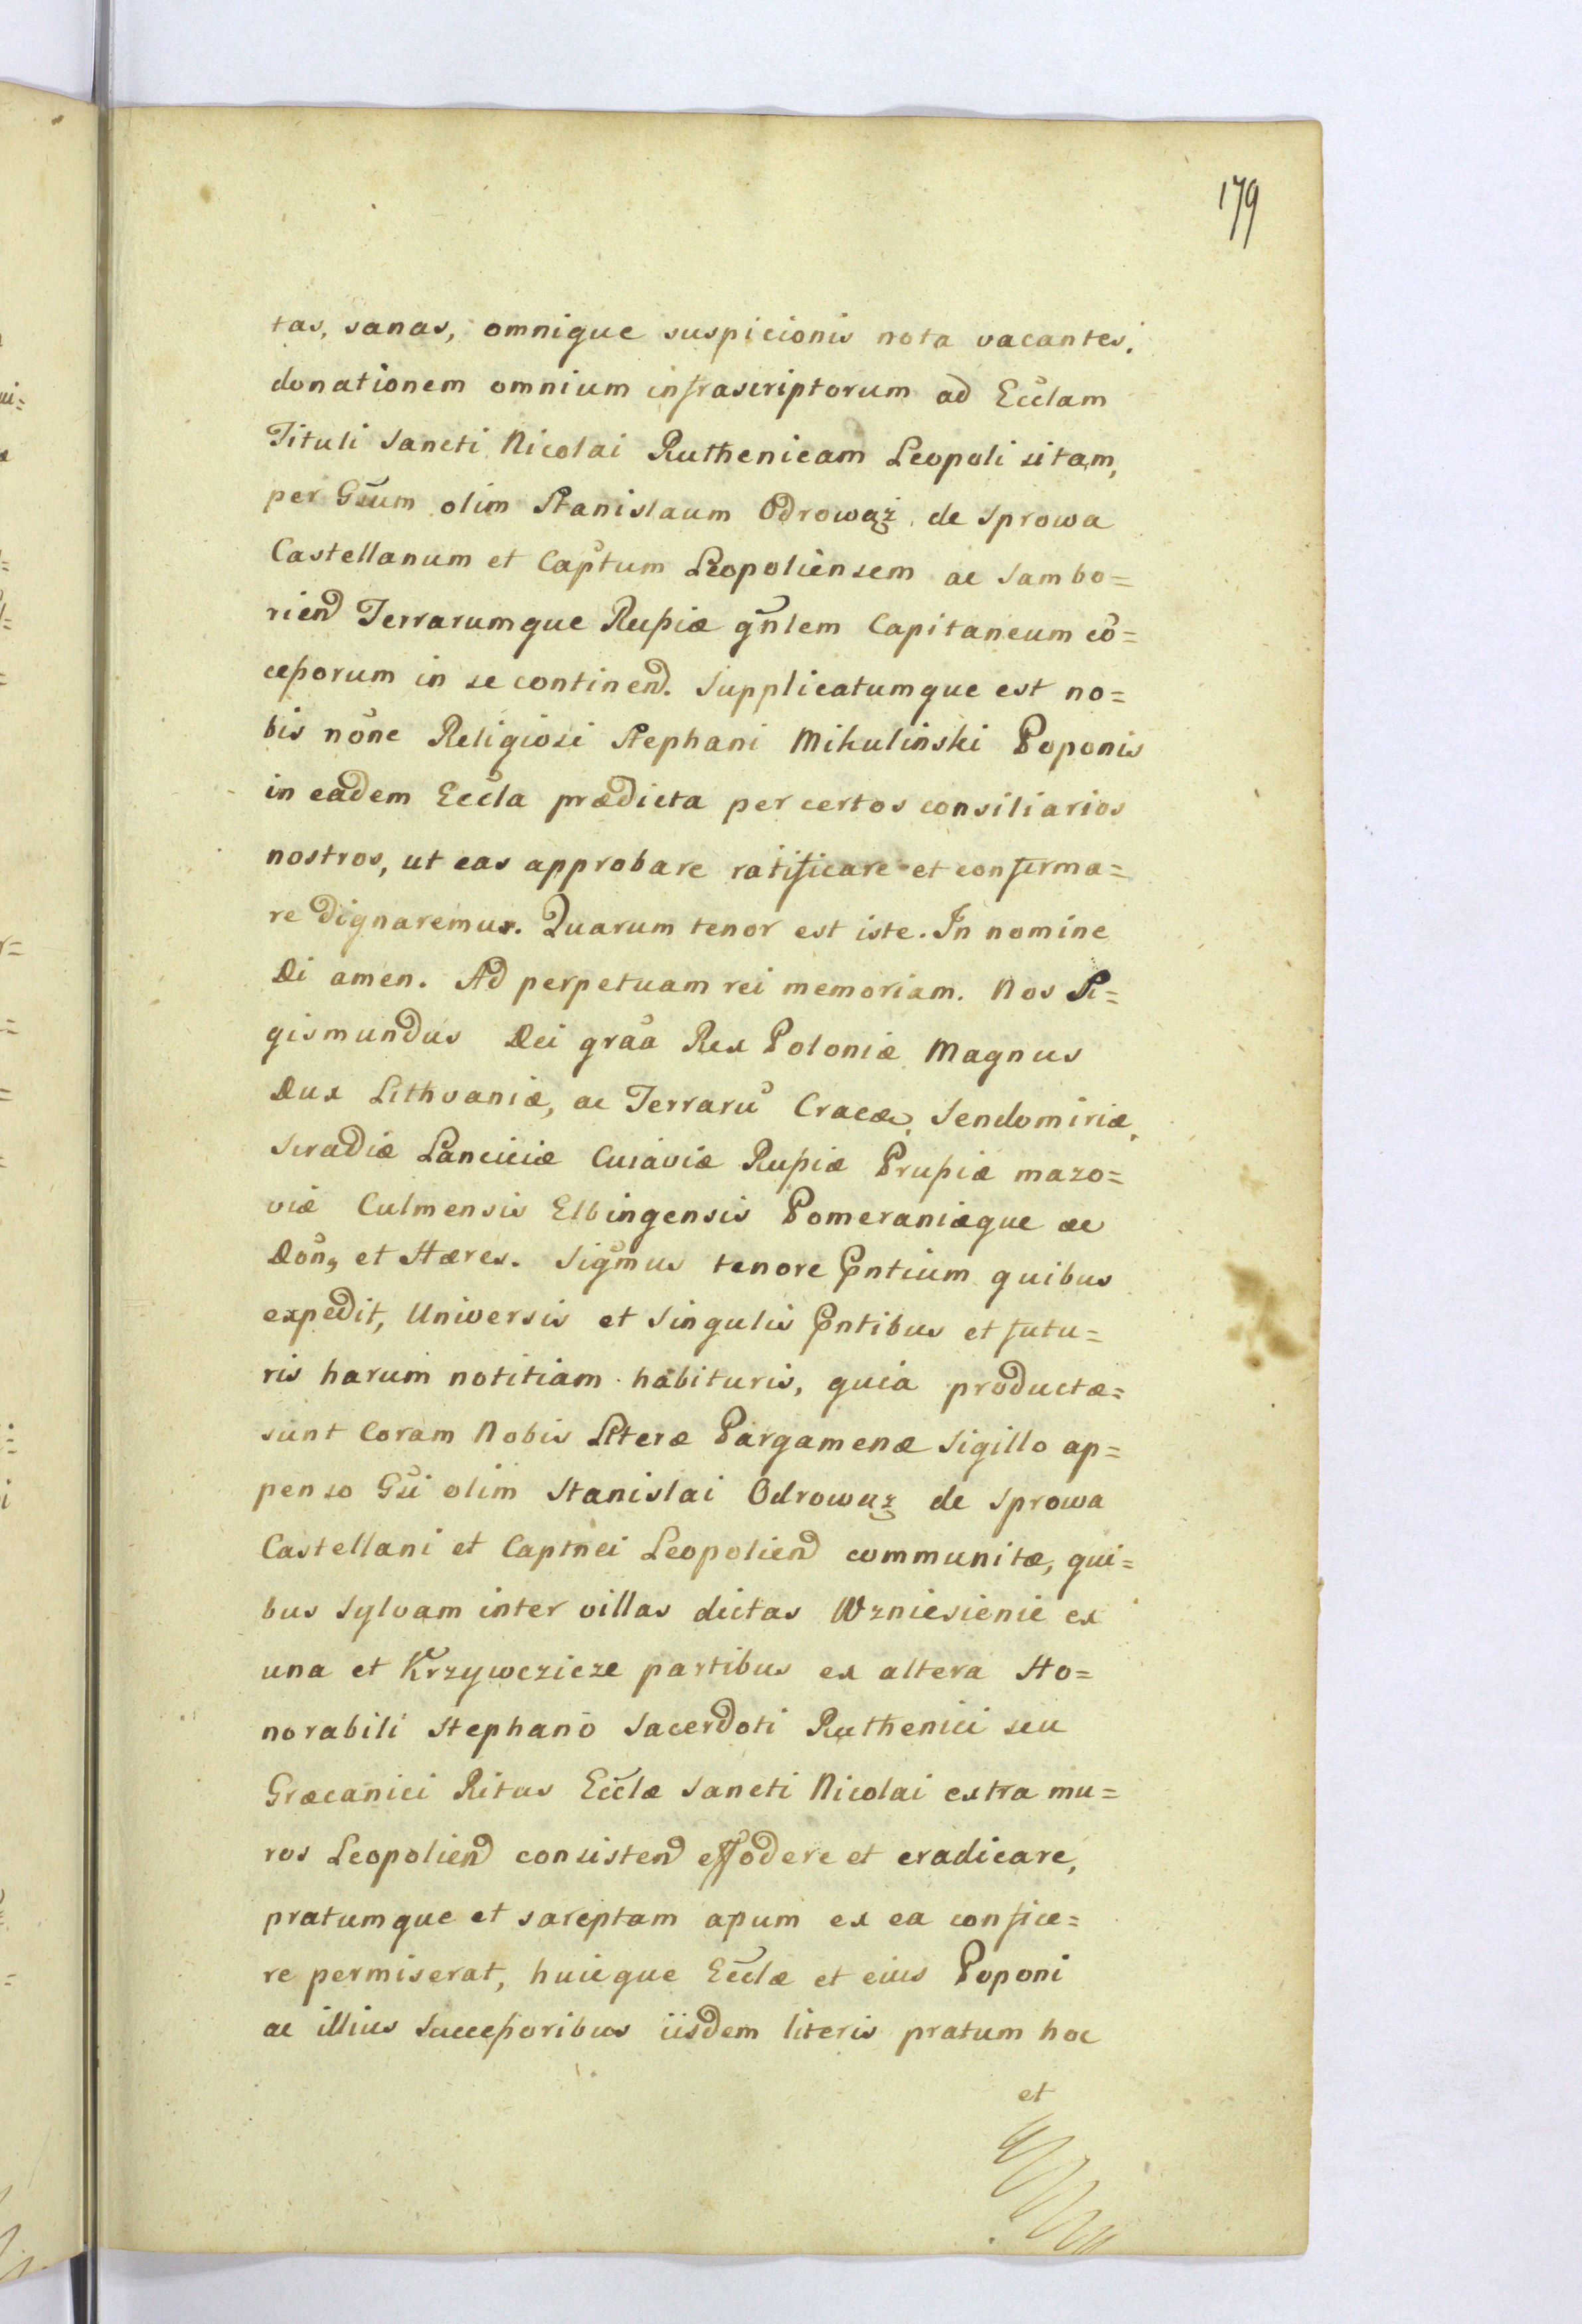 179
tas, sanas, omnique suspicionis nota vacantes,
donationem omnium infrascriptorum ad Ecclam
Tituli Sancti Nicolai Ruthenicam Leopoli sitam,
per Gsum olim Stanislaum Odrowąż de Sprowa
Castellanum et Captum Leopoliensem ac Sambo=
rien Terrarumque Rußiæ gnlem Capitaneum co=
ceßorum in se continen. Supplicatumque est no=
bis nõne Religiosi Stephani Mikulinski Poponis
in eadem Eccla prædicta per certos consiliarios
nostros, ut eas approbare ratificare et confirma=
re dignaremur. Quarum tenor est iste. In nomine
Di amen. Ad perpetuam rei memoriam. Nos Si=
gismundus Dei graa Rex Poloniæ Magnus
Dux Lithvaniæ, ac Terraru Cracæ, Sendomiriæ,
Siradiæ Lanciciæ Cuiaviæ Rußiæ Prußiæ mazo=
viæ Culmensis Elbingensis Pomeraniæque ac
Don, et Hæres. Sigmus tenore Pntium quibus
expedit, Universis et Singulis Pntibus et futu=
ris harum notitiam habituris, quia productæ=
sunt Coram Nobis Literæ Pargamenæ Sigillo ap=
penso Gsi olim Stanislai Odrowąz de Sprowa
Castellani et Captnei Leopolien communitæ, qui=
bus Sylvam inter villas dictas Wzniesienie ex
una et Krzywczicze partibus ex altera Ho=
norabili Stephano Sacerdoti Ruthenici seu
Græcanici Ritus Ecclæ Sancti Nicolai extra mu=
ros Leopolien consisten effodere et eradicare,
pratumque et sareptam apum ex ea confice=
re permiserat, huicque Ecclæ et eius Poponi
ac illius Succeßoribus iisdem literis pratum hoc
et